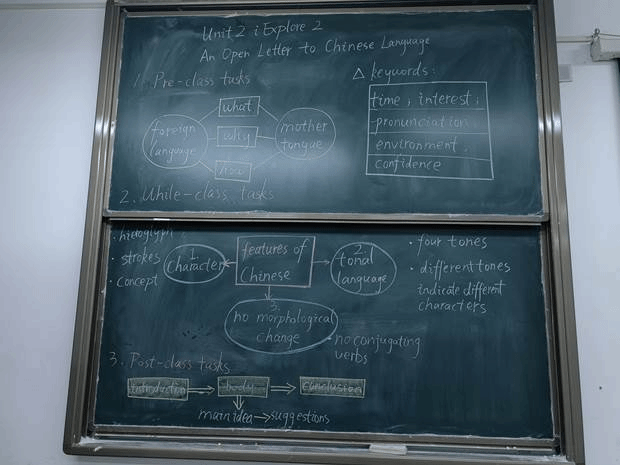 Unit 2 i Explore 2
An Open Letter to Chinese Language
1. Pre-class tasks
foreign language
what
why
how
mother tongue
△ keywords:
time, interest,
pronunciation,
environment,
confidence
2. While-class tasks
· strokes
· concept
1. Character
features of Chinese
2. tonal language
· four tones
· different tones
indicate different
characters
3. no morphological change
· no conjugating
verbs
3. Post-class tasks
introduction
body
conclusion
main idea → suggestions